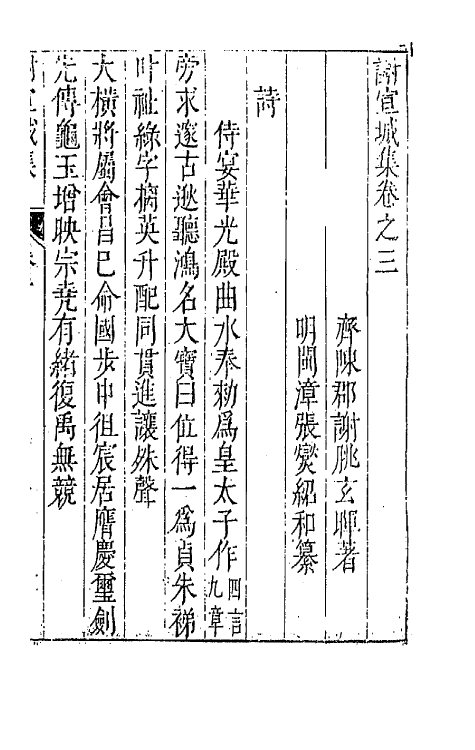 謝宣城集卷之三
齊陳郡謝朓玄暉著
明閩漳張燮紹和纂
詩
侍宴華光殿曲水奉勑爲皇太子作四言九章
旁求邃古逖聽鴻名大寶曰位得一爲貞朱䋺
叶祉綠字摛英升配同貫進讓殊聲
大橫將屬會昌已命國步中徂宸居膺慶璽劍
先傳龜玉增映宗堯有緒復禹無競